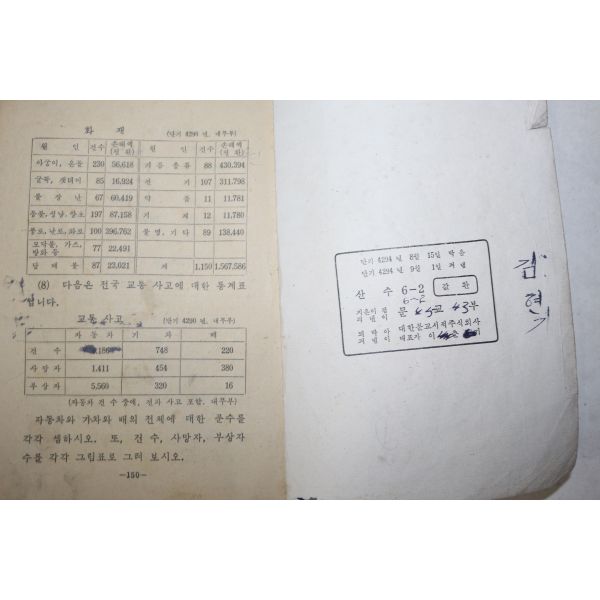 화 재 (단기 4290 년, 내무부)
원 인 건수 손해액 (천 환) 원 인 건수 손해액 (천 환)
아궁이, 온돌 230 56,618 기름 종류 88 430,394
굴뚝, 잿더미 85 16,924 전 기 107 311,798
불 장 난 67 60,419 약 품 11 11,781
등불, 성냥, 양초 197 87,158 기 계 12 11,780
풍로, 난로, 화로 100 396,762 불 명, 기 타 89 138,440
모닥불, 가스, 방화 등 77 22,491
담 배 불 87 23,021 계 1,150 1,567,586
(8) 다음은 전국 교통 사고에 대한 통계표
입니다.
교통 사고 (단기 4290 년, 내무부)
자 동 차 기 차 배
건 수 748 220
사 망 자 1,411 454 380
부 상 자 5,560 320 16
(자동차 건 수 중에, 전차 사고 포함, 내무부)
자동차와 기차와 배의 전체에 대한 분수를
각각 셈하시오. 또, 건 수, 사망자, 부상자
수를 각각 그림표로 그려 보시오.
—150—
단기 4294 년 8월 15일 박음
단기 4294 년 9월 1일 펴냄
산 수 6-2 값 환
6-2
지은이 겸 펴낸이 문 교 부
박아 펴낸이 대한문교서적주식회사
대표자 이
김 현